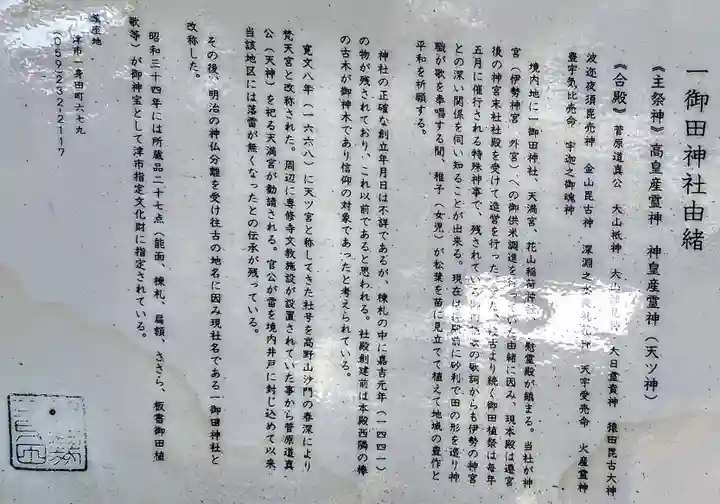 一御田神社由緒
《主祭神》高皇産霊神 神皇産霊神(天ツ神)
《合殿》菅原道真公 大山祇神 大山 大日霊貴神 猿田毘古大神
波迩夜須毘売神 金山毘古神 深淵之水 天宇受売命 火産霊神
豊宇気比売命 宇迦之御魂神
境内地に一御田神社、天満宮、花山稲荷神社、慰霊殿が鎮まる。当社が神
宮(伊勢神宮 外宮)への御供米調進を行っていた由緒に因み、現本殿は遷宮
後の神宮末社社殿を受けて造営を行った。また、往古より続く御田植祭は毎年
五月に催行される特殊神事で、残されている の歌詞からも伊勢の神宮
との深い関係を伺い知ることが出来る。現在は社殿前に砂利で田の形を造り神
職が歌を奉唱する間、稚子(女児)が松葉を苗に見立てて植えて地域の豊作と
平和を祈願する。
神社の正確な創立年月日は不詳であるが、棟札の中に嘉吉元年(一四四一)
の物が残されており、これ以前であると思われる。社殿創建前は本殿西隣の椿
の古木が御神木であり信仰の対象であったと考えられている。
寛文八年(一六六八)に天ツ宮と称してきた社号を高野山沙門の春深により
梵天宮と改称された。周辺に専修寺文教施設が設置されていた事から菅原道真
公(天神)を祀る天満宮が勧請される。官公が雷を境内井戸に封じ込めて以来
当該地区には落雷が無くなったとの伝承が残っている。
その後、明治の神仏分離を受け往古の地名に因み現社名である一御田神社と
改称した。
昭和三十四年には所蔵品二十七点(能面、棟札、扁額、ささら、板書御田植
歌等)が御神宝として津市指定文化財に指定されている。
鎮座地
津市一身田町六七九
(059-232-2117)